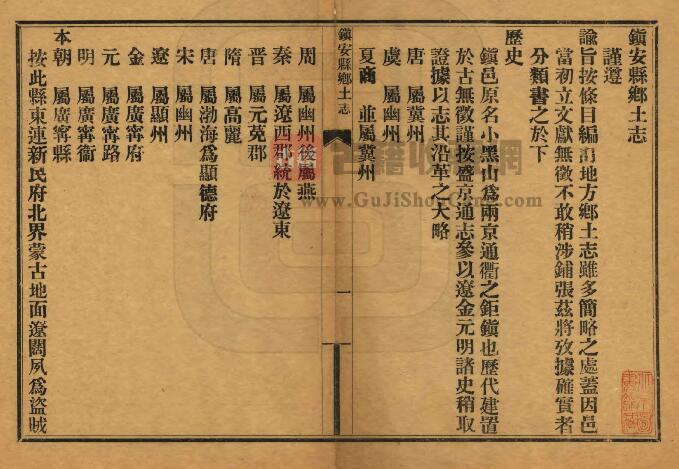 鎮安縣鄉土志
謹遵
諭旨按條目編輯地方鄉土志雖多簡略之處蓋因邑
當初立文獻無徵不敢稍涉鋪張茲將攷據確實者
分類書之於下
歷史
鎮邑原名小黑山爲兩京通衢之鉅鎮也歷代建置
於古無徵謹按盛京通志參以遼金元明諸史稍取
證據以志其沿革之大略
唐 屬冀州
虞 屬幽州
夏商 並屬冀州
鎮安縣鄉土志
一
周 屬幽州後屬燕
秦 屬遼西郡統於遼東
晉 屬元菟郡
隋 屬高麗
唐 屬渤海爲顯德府
宋 屬幽州
遼 屬顯州
金 屬廣寧府
元 屬廣寧路
明 屬廣寧衞
本朝 屬廣寧縣
按此縣東連新民府北界蒙古地面遼闊夙爲盜賊
www.GuJiShouCang.com